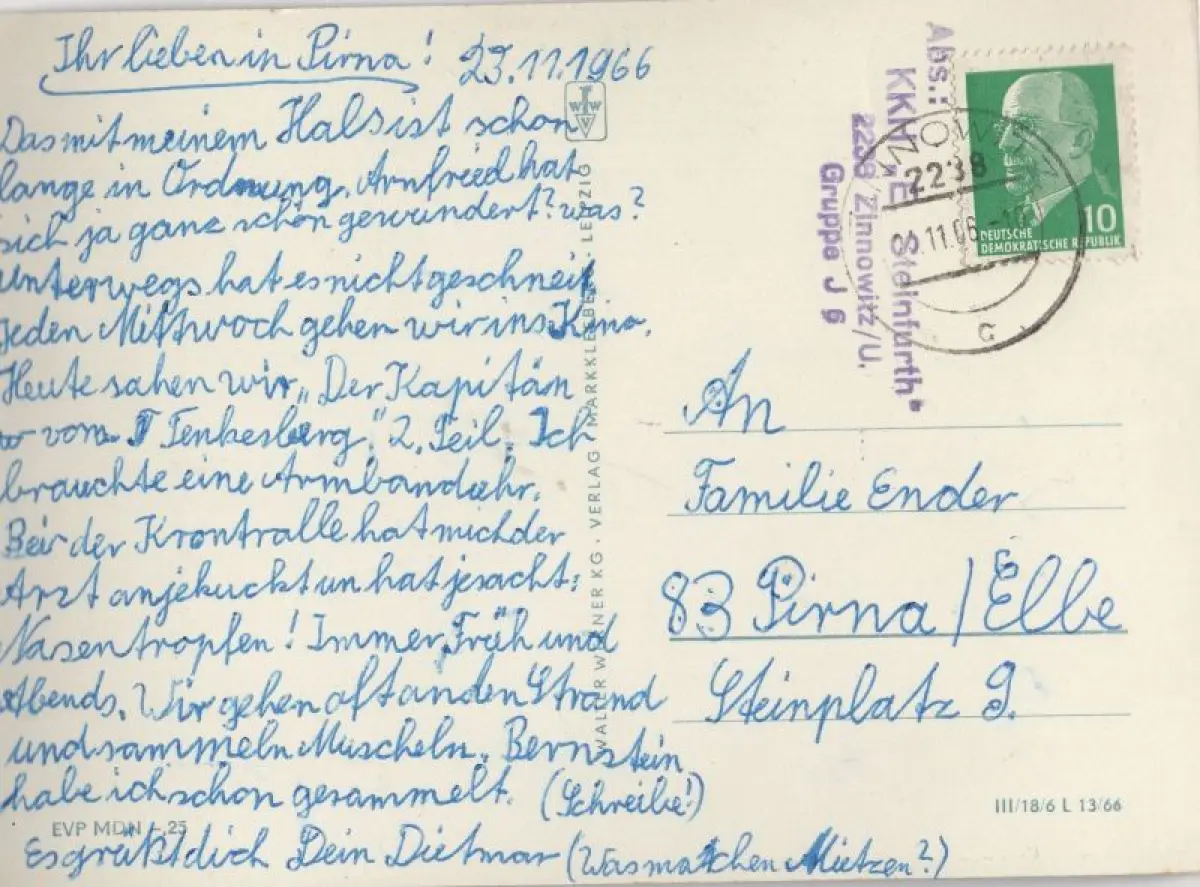 Ihr lieben in Pirna! 23.11.1966
Das mit meinem Hals ist schon
lange in Ordnung. Arnfried hat
sich ja ganz schön gewundert? was?
Unterwegs hat es nicht geschneit.
Jeden Mittwoch gehen wir ins Kino.
Heute sahen wir „Der Kapitän
vom Tenkesberg." 2. Teil. Ich
brauchte eine Armbanduhr.
Bei der Krontralle hat mich der
Arzt anjekuckt un hat jesacht:
Nasentropfen! Immer Früh und
Abends. Wir gehen oft an den Strand
und sammeln Muscheln. Bernstein
habe ich schon gesammelt. (Schreibe!)
Es grüßt dich Dein Dietmar (Was machen Mietzen?)
EVP MDN -,25
WALTER WERNER KG · VERLAG · MARKKLEEBERG - LEIPZIG
WWV
Abs.:
KKH „E Steinfurth"
2238 Zinnowitz/U.
Gruppe J 6
2238
11.66
G
10
DEUTSCHE
DEMOKRATISCHE REPUBLIK
An
Familie Ender
83 Pirna / Elbe
Steinplatz 9.
III/18/6 L 13/66